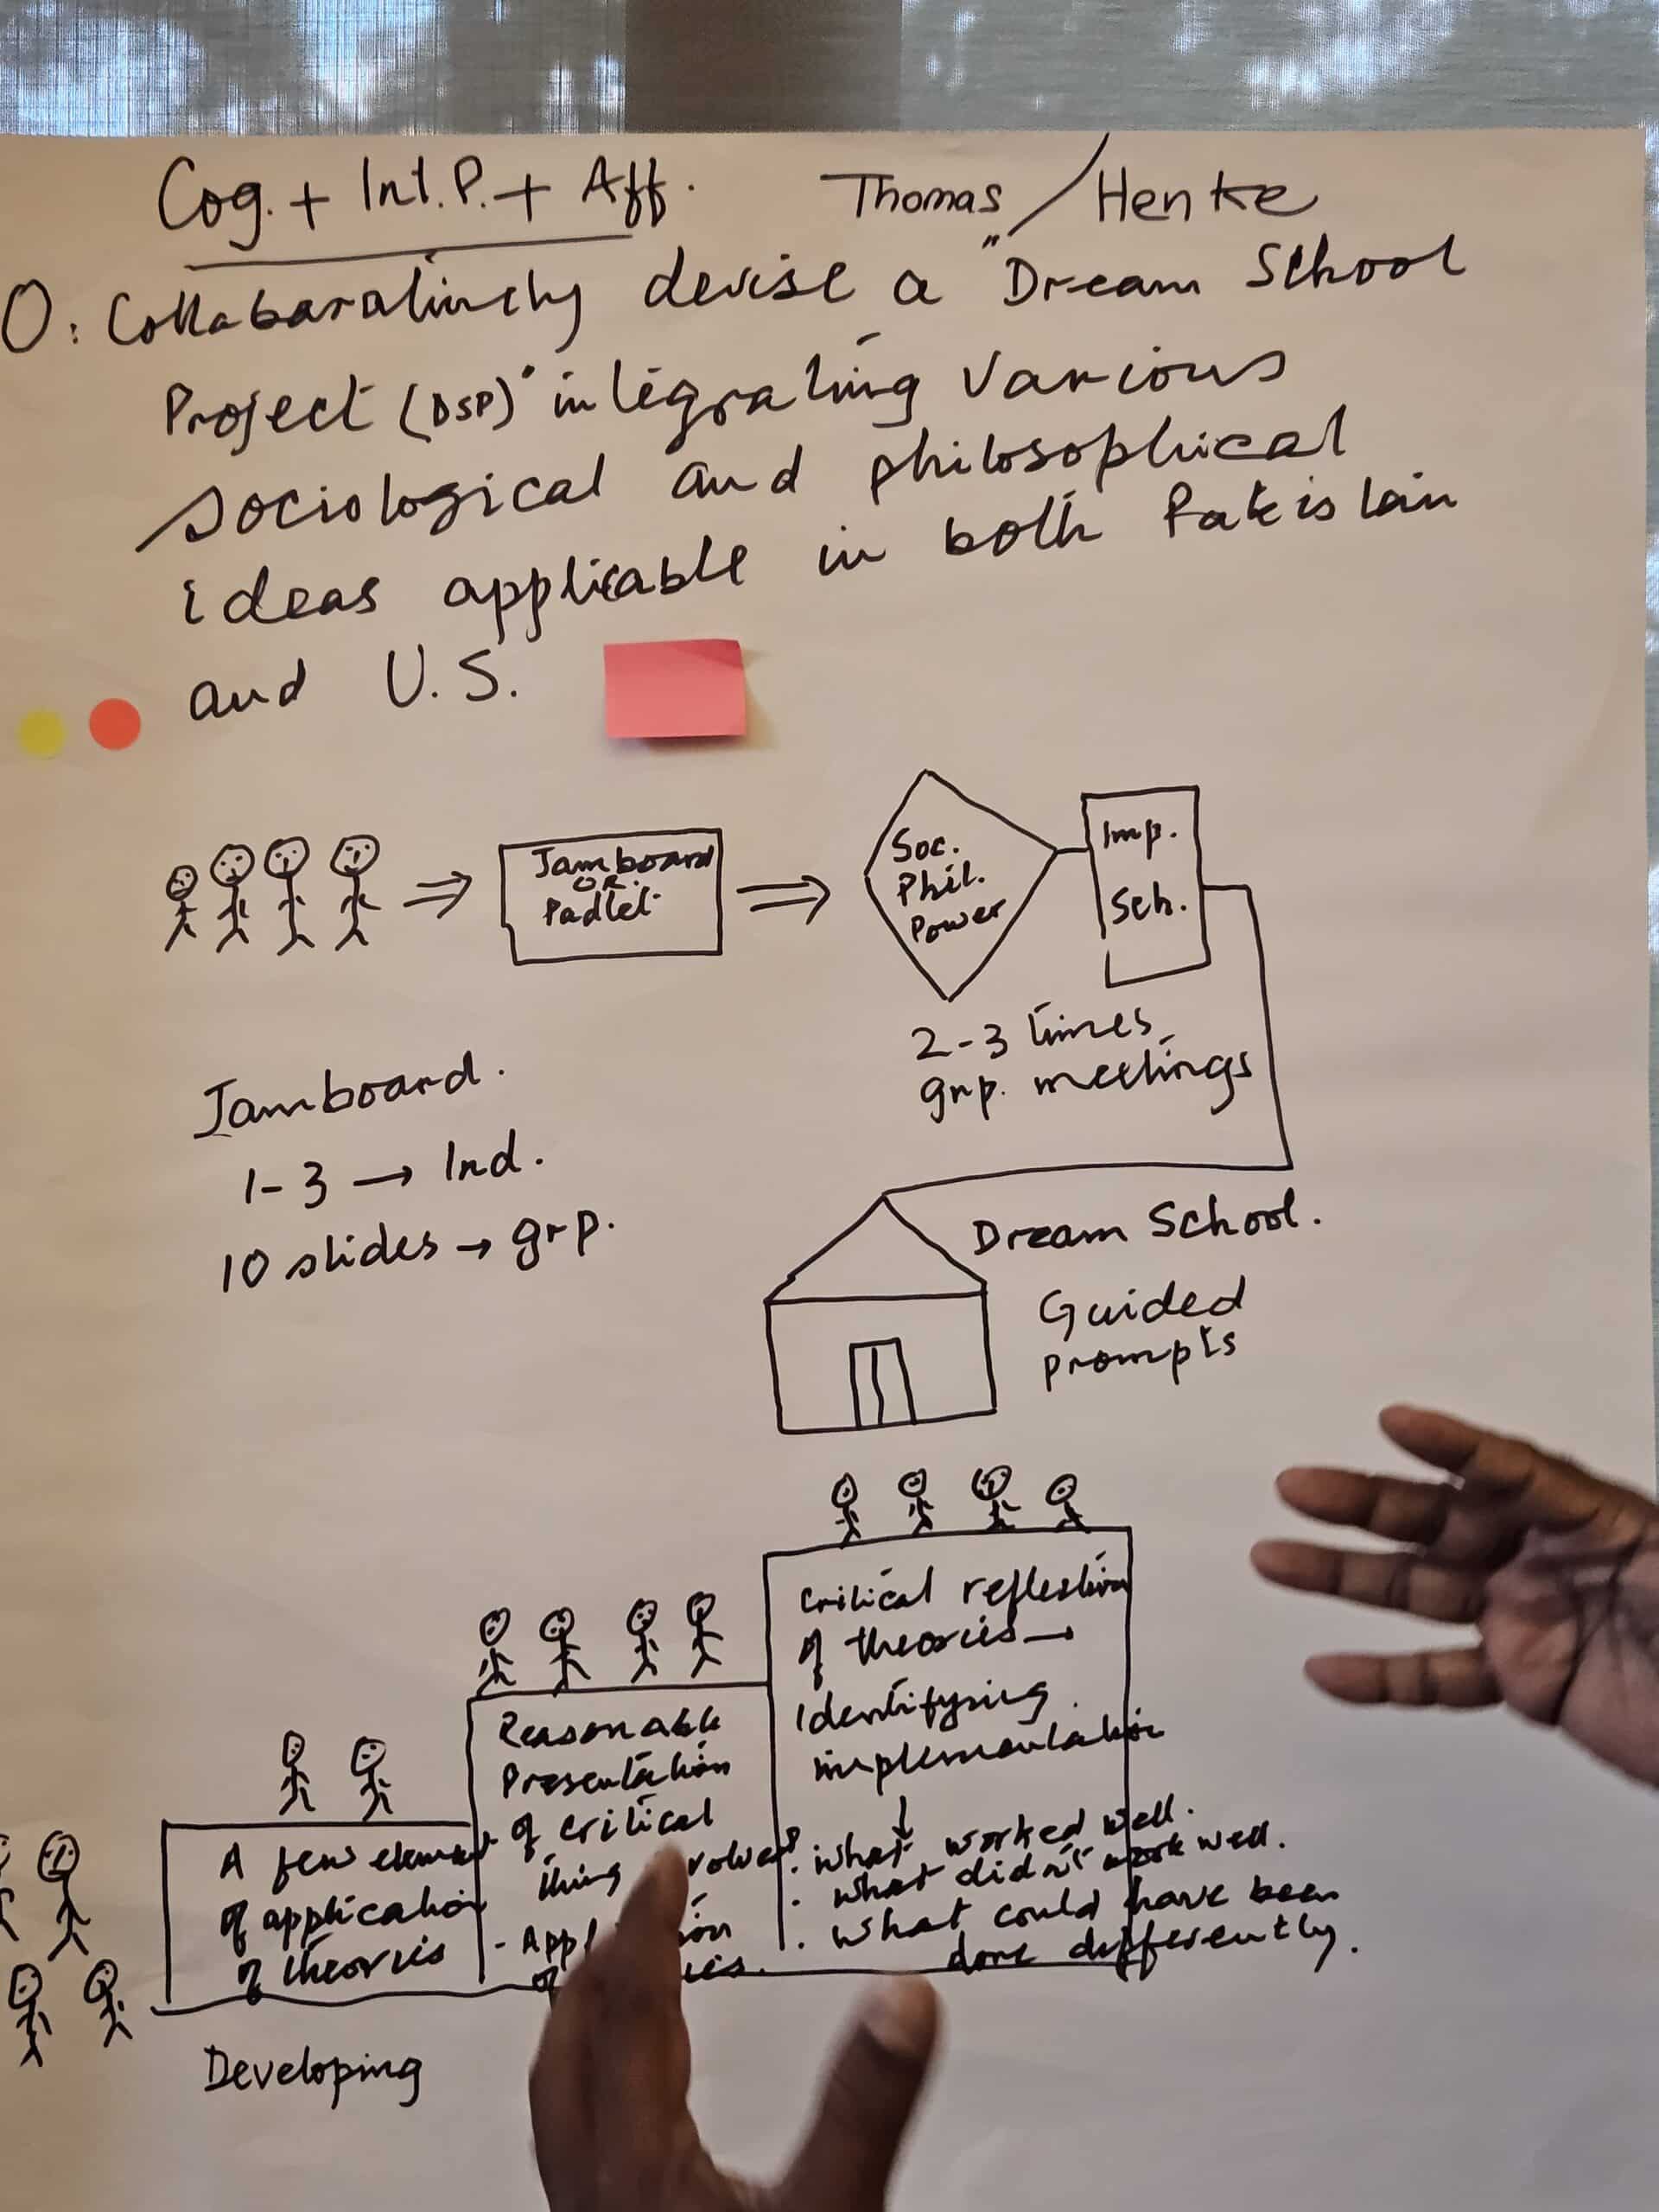 Cog. + Int. P. + Aff.
Thomas / Henke
O: Collabaratively devise a "Dream School
Project (DSP)" integrating various
sociological and philosophical
ideas applicable in both Pakistan
and U.S.
Jamboard
OR.
Padlet
Soc.
Phil.
Power
Imp.
Sch.
2-3 times
grp. meetings
Jamboard.
1-3 → Ind.
10 slides → grp.
Dream School.
Guided
prompts
A few element
of application
of theories
Developing
Reasonable
Presentation
of critical
- App
of
Critical reflection
of theories →
Identifying
implementation
↓
. what worked well.
. what didn't work well.
. what could have been
done differently.